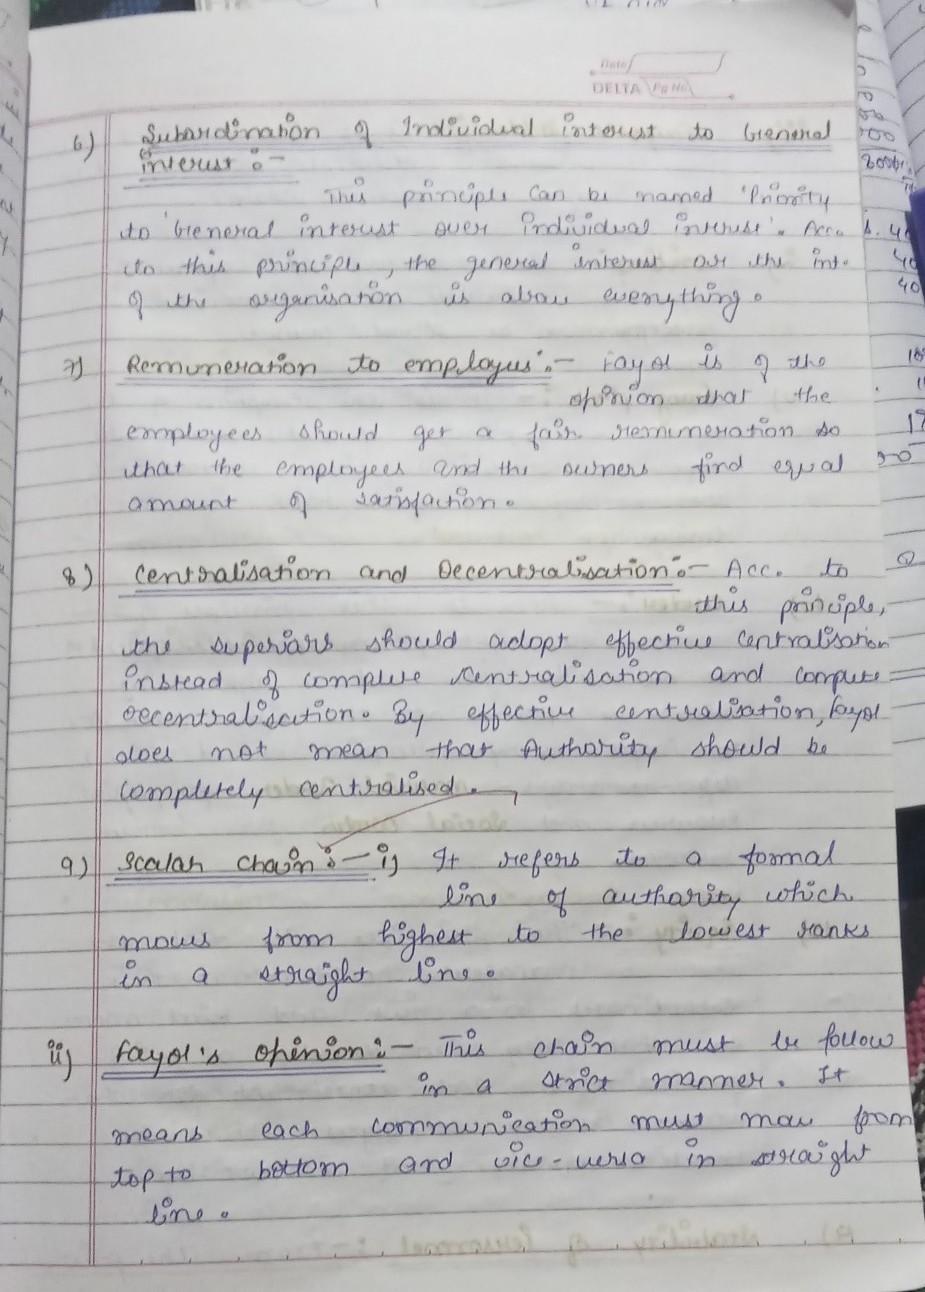 Date
DELTA Pg No.
6) Subordination of Individual interest to General
interest :-
This principle can be named 'Priority
to General interest over individual interest'. Acc.
to this principle, the general interest or the int.
of the organisation is above everything.
7) Remuneration to employees :- Fayol is of the
opinion that the
employees should get a fair remuneration so
that the employees and the owners find equal
amount of satisfaction.
8) Centralisation and Decentralisation :- Acc. to
this principle,
the superiors should adopt effective centralisation
instead of complete centralisation and complete
decentralisation. By effective centralisation, Fayol
does not mean that Authority should be
completely centralised.
9) Scalar chain :- i) It refers to a formal
line of authority which
moves from highest to the lowest ranks
in a straight line.
ii) Fayol's opinion :- This chain must be follow
in a strict manner. It
means each communication must move from
top to bottom and vice-versa in straight
line.